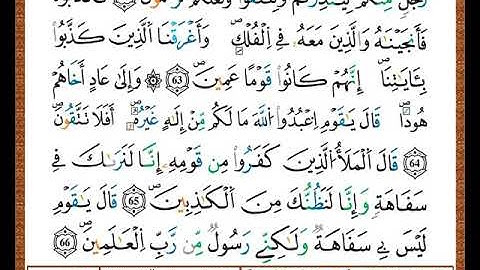 رَجُلٍ مِّنكُمْ لِيُنذِرَكُمْ وَلِتَتَّقُوا۟ وَلَعَلَّكُمْ
فَأَنجَيْنَٰهُ وَٱلَّذِينَ مَعَهُۥ فِى ٱلْفُلْكِ وَأَغْرَقْنَا ٱلَّذِينَ كَذَّبُوا۟
بِـَٔايَٰتِنَآ إِنَّهُمْ كَانُوا۟ قَوْمًا عَمِينَ ۖ 63 ۞ وَإِلَىٰ عَادٍ أَخَاهُمْ
هُودًا ۖ قَالَ يَٰقَوْمِ ٱعْبُدُوا۟ ٱللَّهَ مَا لَكُم مِّنْ إِلَٰهٍ غَيْرُهُۥٓ ۖ أَفَلَا تَتَّقُونَ ۖ
64 قَالَ ٱلْمَلَأُ ٱلَّذِينَ كَفَرُوا۟ مِن قَوْمِهِۦٓ إِنَّا لَنَرَىٰكَ فِى
سَفَاهَةٍ وَإِنَّا لَنَظُنُّكَ مِنَ ٱلْكَٰذِبِينَ ۖ 65 قَالَ يَٰقَوْمِ
لَيْسَ بِى سَفَاهَةٌ وَلَٰكِنِّى رَسُولٌ مِّن رَّبِّ ٱلْعَٰلَمِينَ ۖ 66